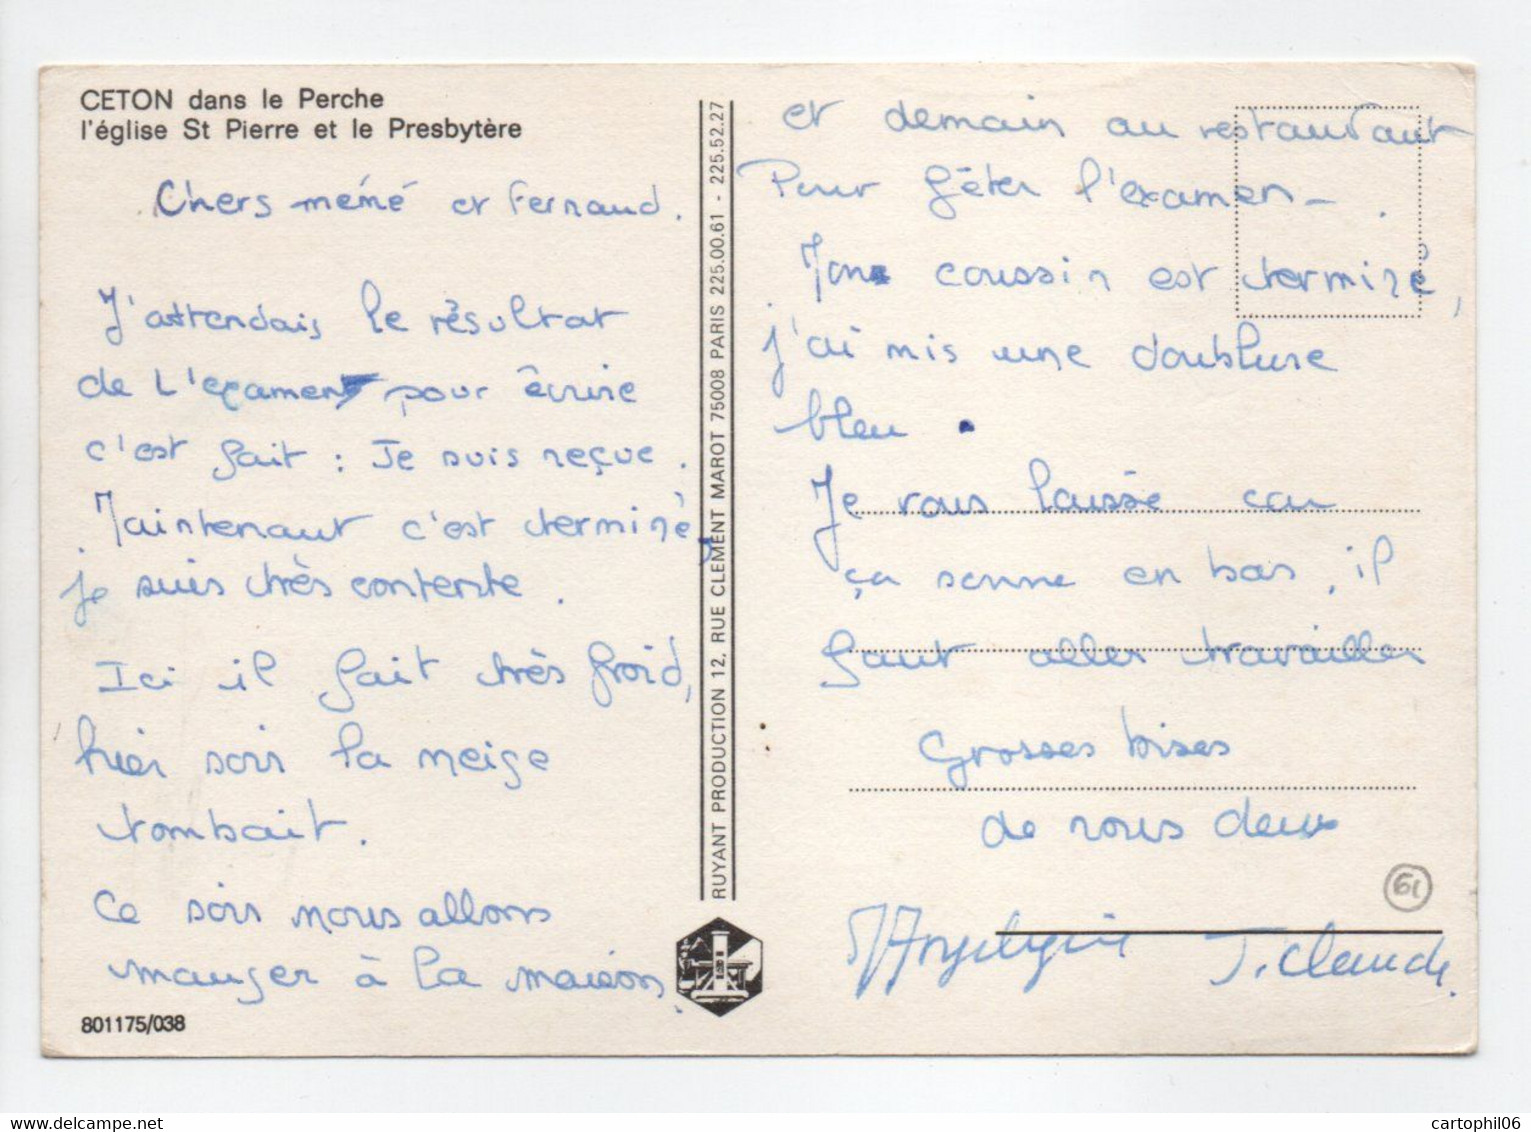 CETON dans le Perche
l'église St Pierre et le Presbytère
Chers mémé et Fernand.
J'attendais le résultat
de L'examen pour écrire
c'est fait : Je suis reçue.
Maintenant c'est terminé,
je suis très contente.
Ici il fait très froid,
hier soir la neige
tombait.
Ce soir nous allons
manger à la maison
801175/038
RUYANT PRODUCTION 12, RUE CLEMENT MAROT 75008 PARIS 225.00.61 - 225.52.27
et demain au restaurant
Pour fêter l'examen.
Mon coussin est terminé,
j'ai mis une doublure
bleu.
Je vous laisse car
ça sonne en bas, il
faut aller travailler
Grosses bises
de nous deux
J. Claude.
61
cartophil06